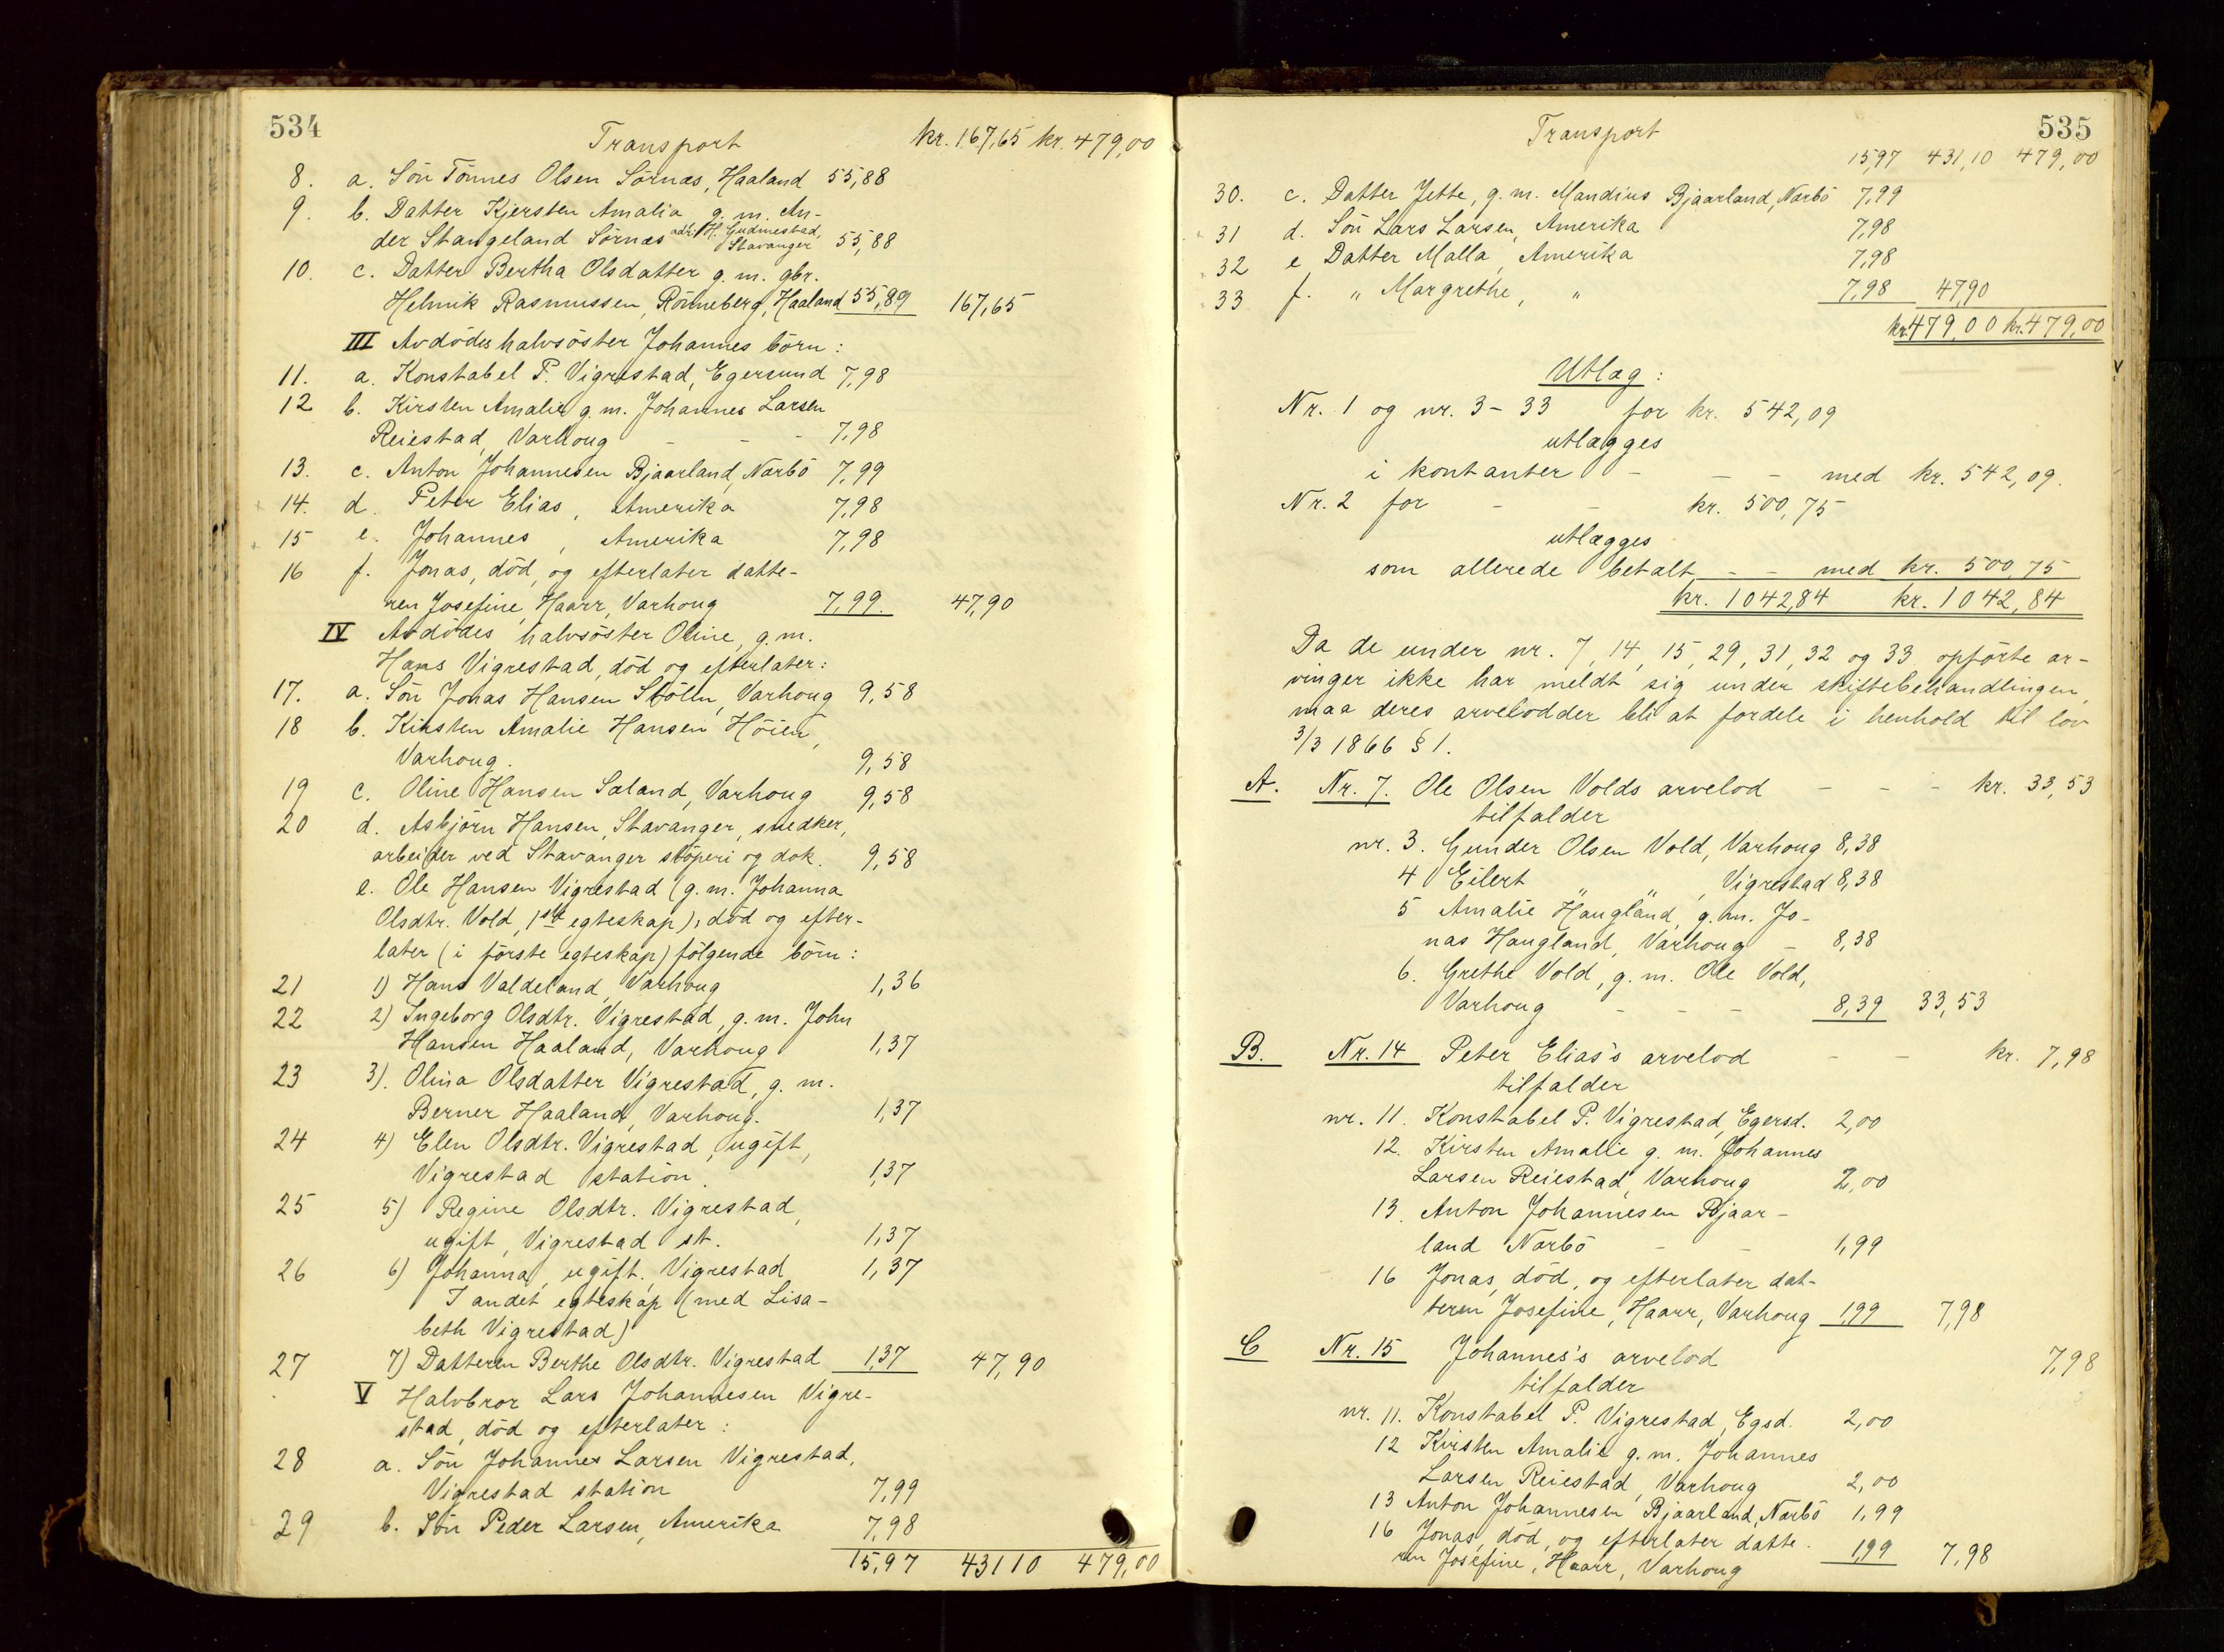 534
Transport kr. 167,65 kr. 479,00
8. a. Sön Tönnes Olsen Sörnæs, Haaland 55,88
9. b. Datter Kjersten Amalia g. m. An-
der Stangeland Sörnæs adr. H. Gudmestad, Stavanger 55,88
10. c. Datter Bertha Olsdatter g. m. gbr.
Helmik Rasmussen, Rönneberg, Haaland 55,89 167,65
III Avdödes halvsöster Johannes börn:
11. a. Konstabel P. Vigrestad, Egersund 7,98
12 b. Kirsten Amalie g. m. Johannes Larsen
Reiestad, Varhoug - - - 7,98
13. c. Anton Johannesen Bjaarland, Nærbö 7,99
14. d. Peter Elias, Amerika 7,98
15 e. Johannes, Amerika 7,98
16 f. Jonas, död, og efterlater datte-
ren Josefine, Haarr, Varhoug 7,99 47,90
IV Avdödes halvsöster Oline, g. m.
Hans Vigrestad, död og efterlater:
17. a. Sön Jonas Hansen Stölln, Varhoug 9,58
18 b. Kirsten Amalie Hansen Höien,
Varhoug. 9,58
19 c. Oline Hansen Sæland, Varhoug 9,58
20 d. Asbjörn Hansen, Stavanger, snedker,
arbeider ved Stavanger stöperi og dok. 9,58
e. Ole Hansen Vigrestad (g. m. Johanna
Olsdtr. Vold, 1ste egteskap); död og efter-
later (i förste egteskap) fölgende börn:
21 1) Hans Valdeland, Varhoug 1,36
22 2) Ingeborg Olsdtr. Vigrestad, g. m. John
Hansen Haaland, Varhoug 1,37
23 3). Olina Olsdatter Vigrestad, g. m.
Berner Haaland, Varhoug. 1,37
24 4) Elen Olsdtr. Vigrestad, ugift,
Vigrestad station. 1,37
25 5) Regine Olsdtr. Vigrestad,
ugift, Vigrestad st. 1,37
26 6) Johanna, ugift. Vigrestad 1,37
I andet egteskap (med Lisa-
beth Vigrestad)
27 7) Datteren Berthe Olsdtr. Vigrestad 1,37 47,90
V Halvbror Lars Johannesen Vigre-
stad, död og efterlater:
28 a. Sön Johannes Larsen Vigrestad,
Vigrestad station 7,99
29 b. Sön Peder Larsen, Amerika 7,98
15,97 431 10 479,00
535
Transport
15,97 431,10 479,00
30. c. Datter Jette, g. m. Mandius Bjaarland, Nærbö 7,99
31 d. Sön Lars Larsen, Amerika 7,98
32 e Datter Malla, Amerika 7,98
33 f. " Margrethe, " 7,98 47,90
kr. 479,00 kr. 479,00
Utlæg:
Nr. 1 og nr. 3 - 33 for kr. 542,09
utlægges
i kontanter - - - med kr. 542,09.
Nr. 2 for - - kr. 500,75
utlægges
som allerede betalt - - med kr. 500,75
kr. 1042,84 kr. 1042,84
Da de under nr. 7, 14, 15, 29, 31, 32 og 33 opförte ar-
vinger ikke har meldt sig under skiftebehandlingen,
maa deres arvelodder bli at fordele i henhold til lov
3/3 1866 § 1.
A. Nr. 7. Ole Olsen Volds arvelod - - - kr. 33,53
tilfalder
nr. 3. Gunder Olsen Vold, Varhoug 8,38
4 Eilert " " , Vigrestad 8,38
5 Amalie Haugland, g. m. Jo-
nas Haugland, Varhoug - 8,38
6. Grethe Vold, g. m. Ole Vold,
Varhoug - - - 8,39 33,53
B. Nr. 14 Peter Elias's arvelod - - kr. 7,98
tilfalder
nr. 11. Konstabel P. Vigrestad, Egersd. 2,00
12. Kirsten Amalie g. m. Johannes
Larsen Reiestad, Varhoug 2,00
13. Anton Johannesen Bjaar-
land Nærbö - - 1,99
16 Jonas, död, og efterlater dat-
teren Josefine, Haarr, Varhoug 1,99 7,98
C Nr. 15 Johannes's arvelod 7,98
tilfalder
nr. 11. Konstabel P. Vigrestad, Egsd. 2,00
12 Kirsten Amalie g. m. Johannes
Larsen Reiestad, Varhoug 2,00
13 Anton Johannesen Bjaarland, Nærbö 1,99
16 Jonas, död, og efterlater datte-
ren Josefine, Haarr, Varhoug 1,99 7,98